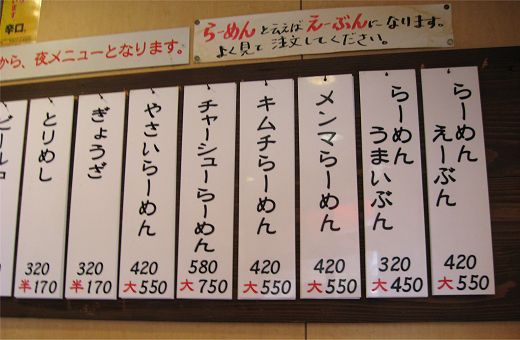 辛口
から、夜メニューとなります。
らーめんと云えばえーぶんになります。
よく見て注文してください。
らーめん
えーぶん
420
大550
らーめん
うまいぶん
320
大450
メンマらーめん
420
大550
キムチらーめん
420
大550
チャーシューらーめん
580
大750
やさいらーめん
420
大550
ぎょうざ
320
半170
とりめし
320
半170